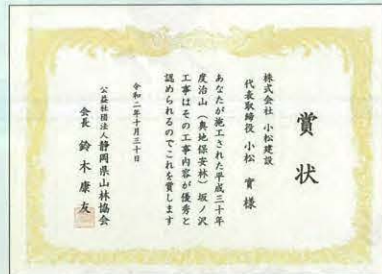 賞状
株式会社 小松建設
代表取締役 小松 實 様
あなたが施工された平成三十年
度治山（奥地保安林）坂ノ沢
工事はその工事内容が優秀と
認められるのでこれを賞します
令和二年十月三十日
公益社団法人静岡県山林協会
会長 鈴木康友